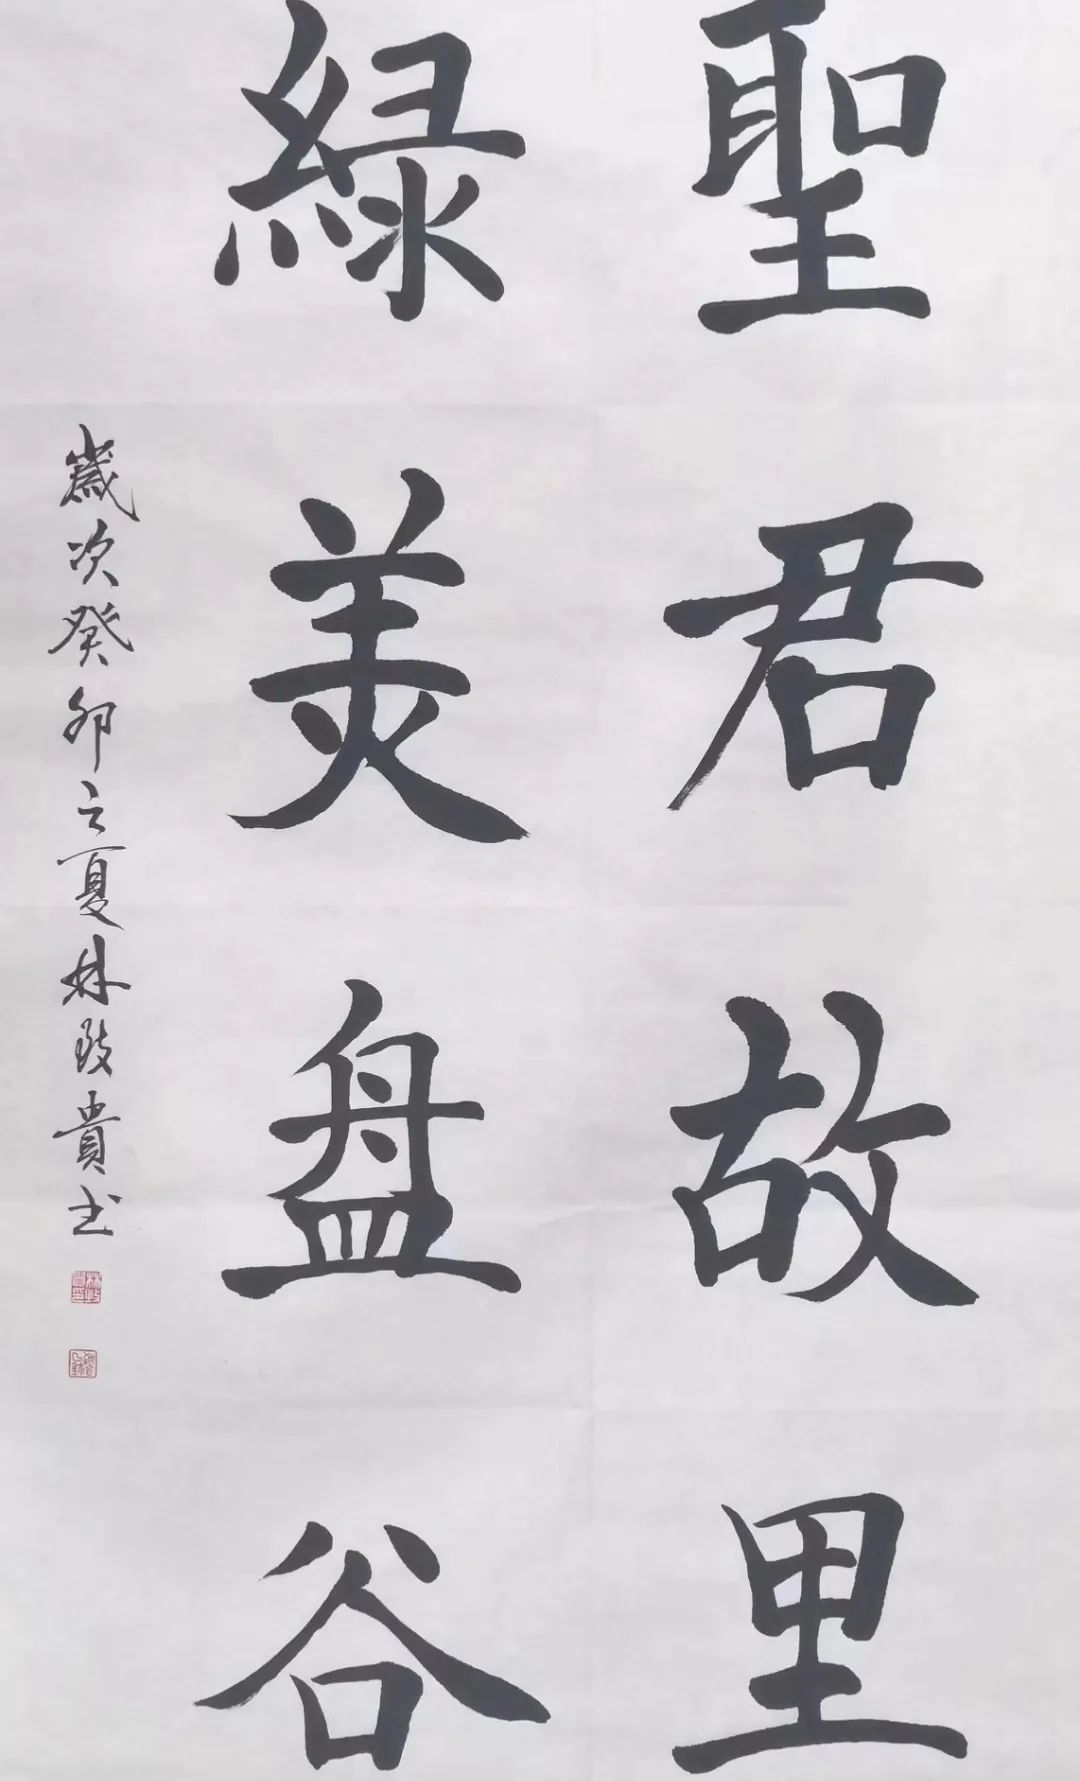 聖君故里
緑美盘谷
歲次癸卯之夏林致貴书